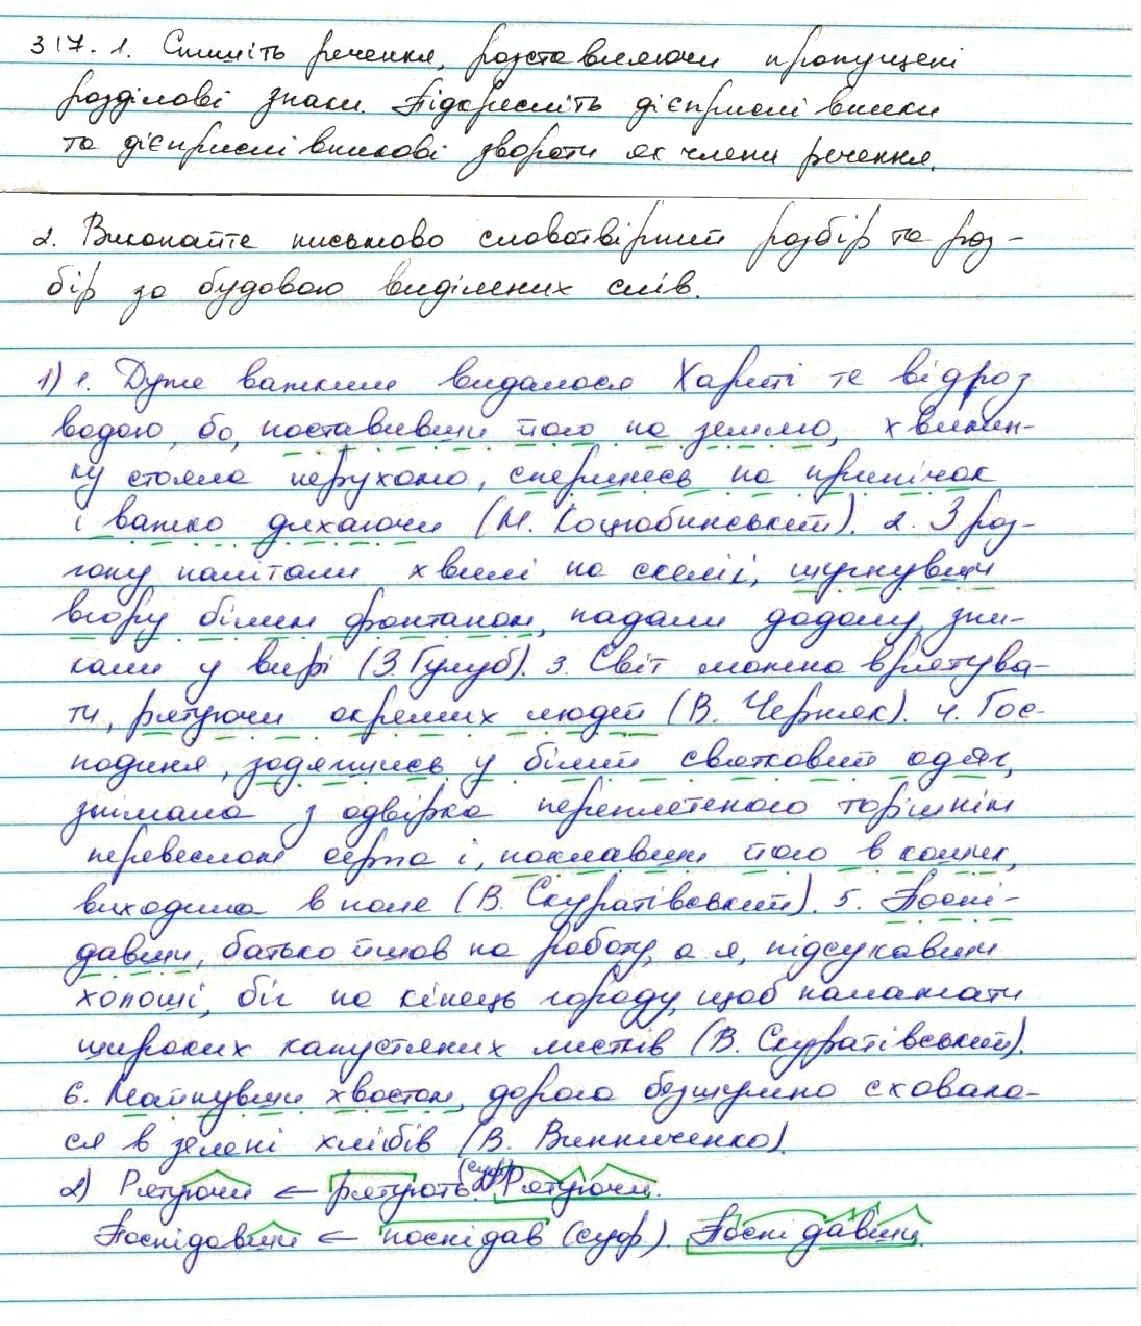 317. 1. Спишіть речення, розставляючи пропущені
розділові знаки. Підкресліть дієприслівники
та дієприслівникові звороти як члени речення.
2. Виконайте письмово словотвірний розбір та роз-
бір за будовою виділених слів.
1) 1. Дуже важким видалося Хариті те відроз
водою, бо, поставивши його на землю, хвилин-
ку стояла нерухомо, спершись на припічок
і важко дихаючи (М. Коцюбинський). 2. З роз-
гону налітали хвилі на скелі, шугнувши
вгору білим фонтаном, падали додолу, зни-
кали у вирі (З. Гулуб). 3. Світ можна врятува-
ти, рятуючи окремих людей (В. Черняк). 4. Гос-
подиня, задягшись у білий святковий одяг,
знімала з одвірка переплетеного торішнім
перевеслом серпа і, поклавши його в кошик,
виходила в поле (В. Скуратівський). 5. Посні-
давши, батько йшов на роботу, а я, підсукавши
холоші, біг на кінець городу, щоб наламати
широких капустяних листків (В. Скуратівський).
6. Майнувши хвостом, дорога безшумно сховала-
ся в зелені хлібів (В. Винниченко).
2) Рятуючи ← рятують (суф) Рятуючи.
Поснідавши ← поснідав (суф). Поснідавши.